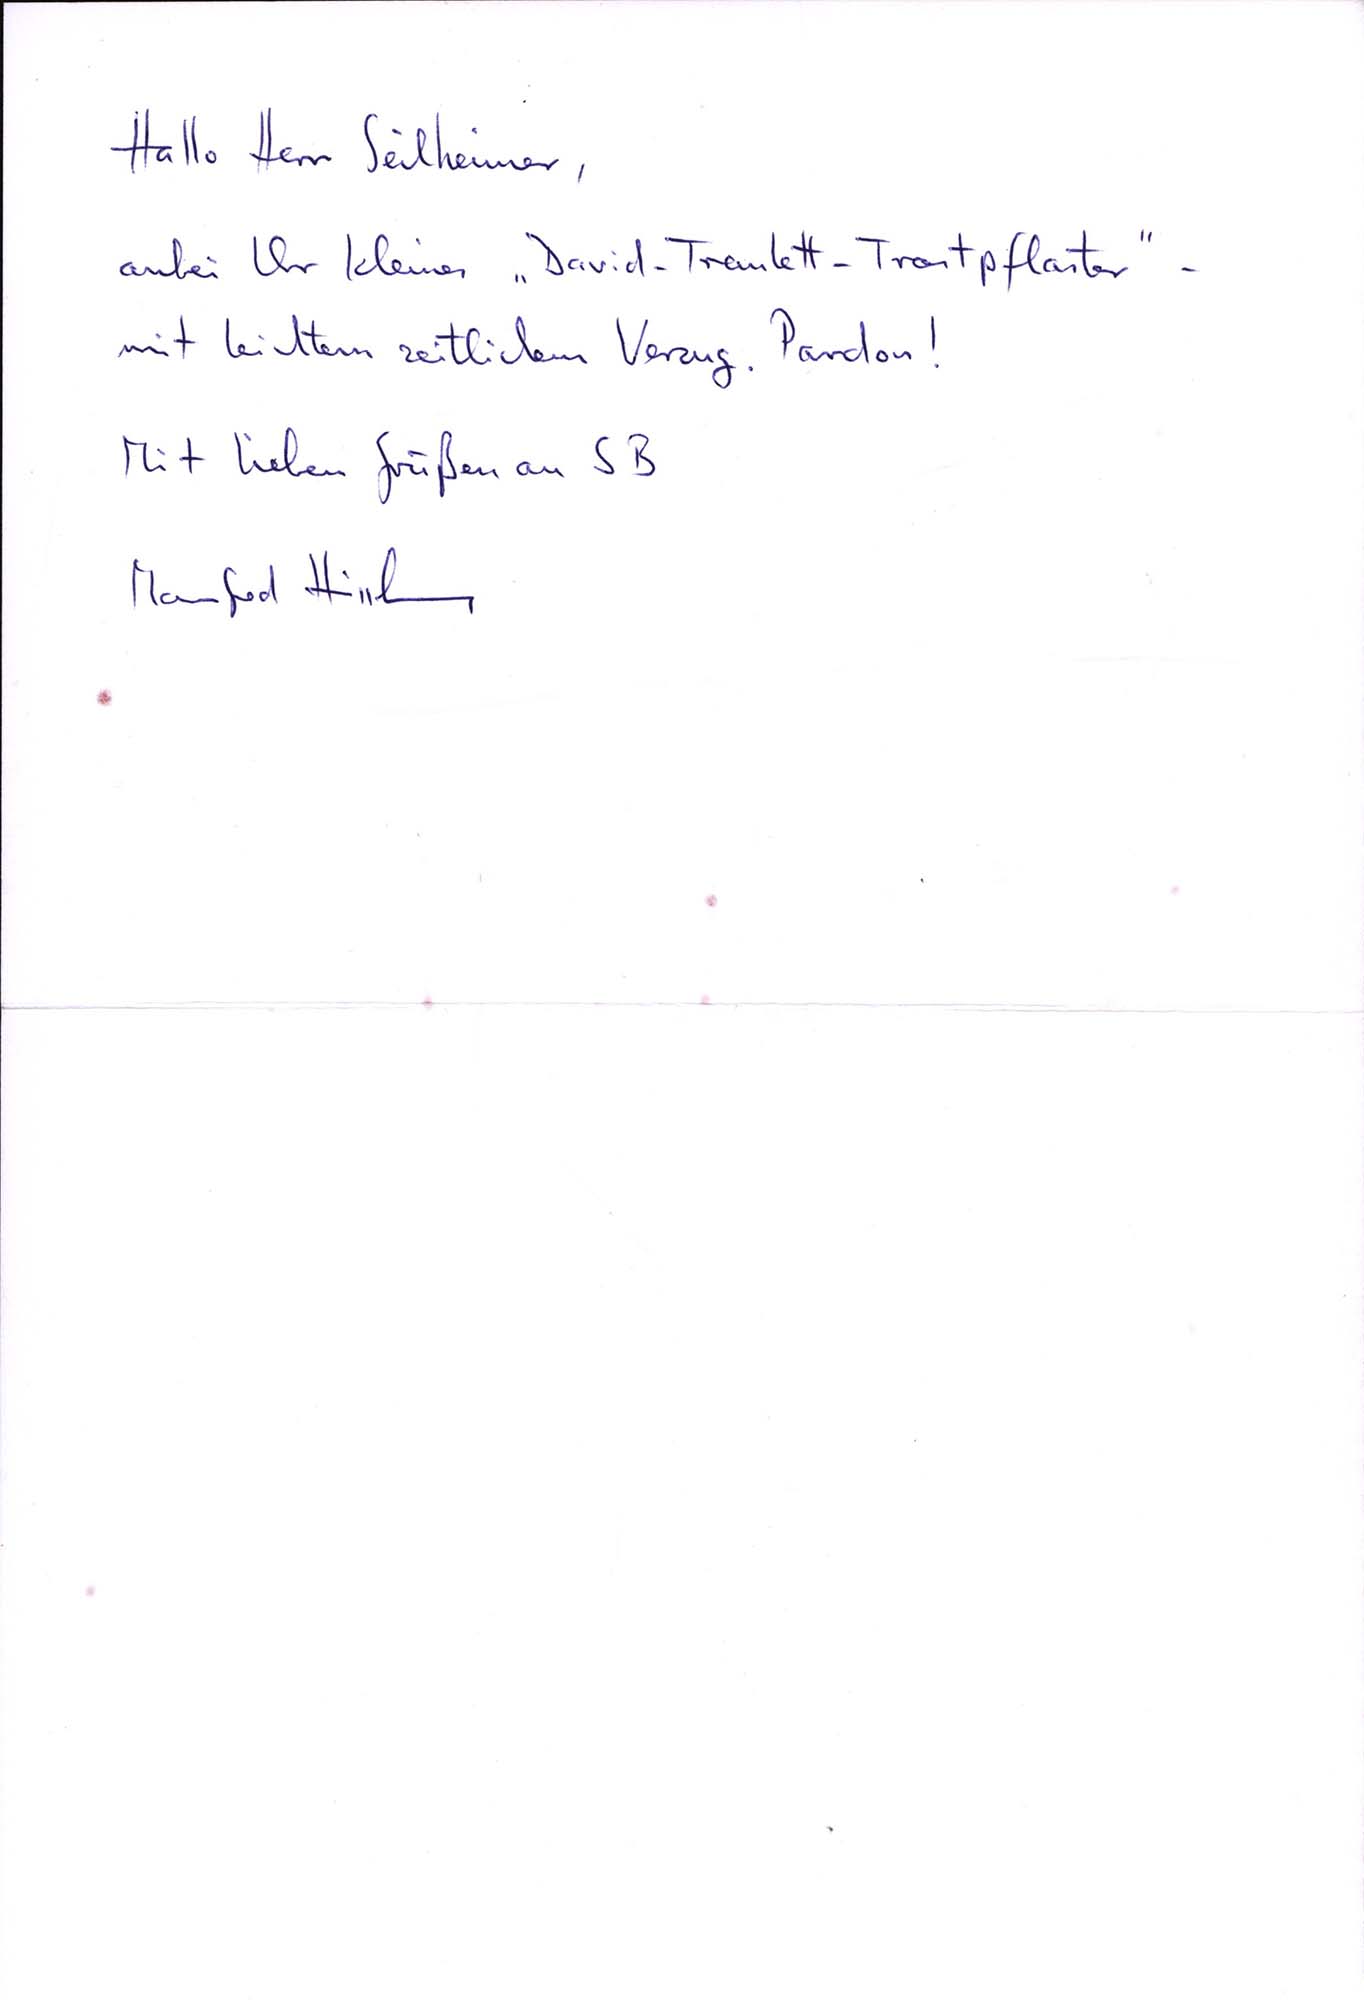 Hallo Herr Seilheimer,
anbei Ihr kleines „David-Tremlett-Trostpflaster" -
mit leichtem zeitlichem Verzug. Pardon!
Mit lieben Grüßen an SB
Manfred